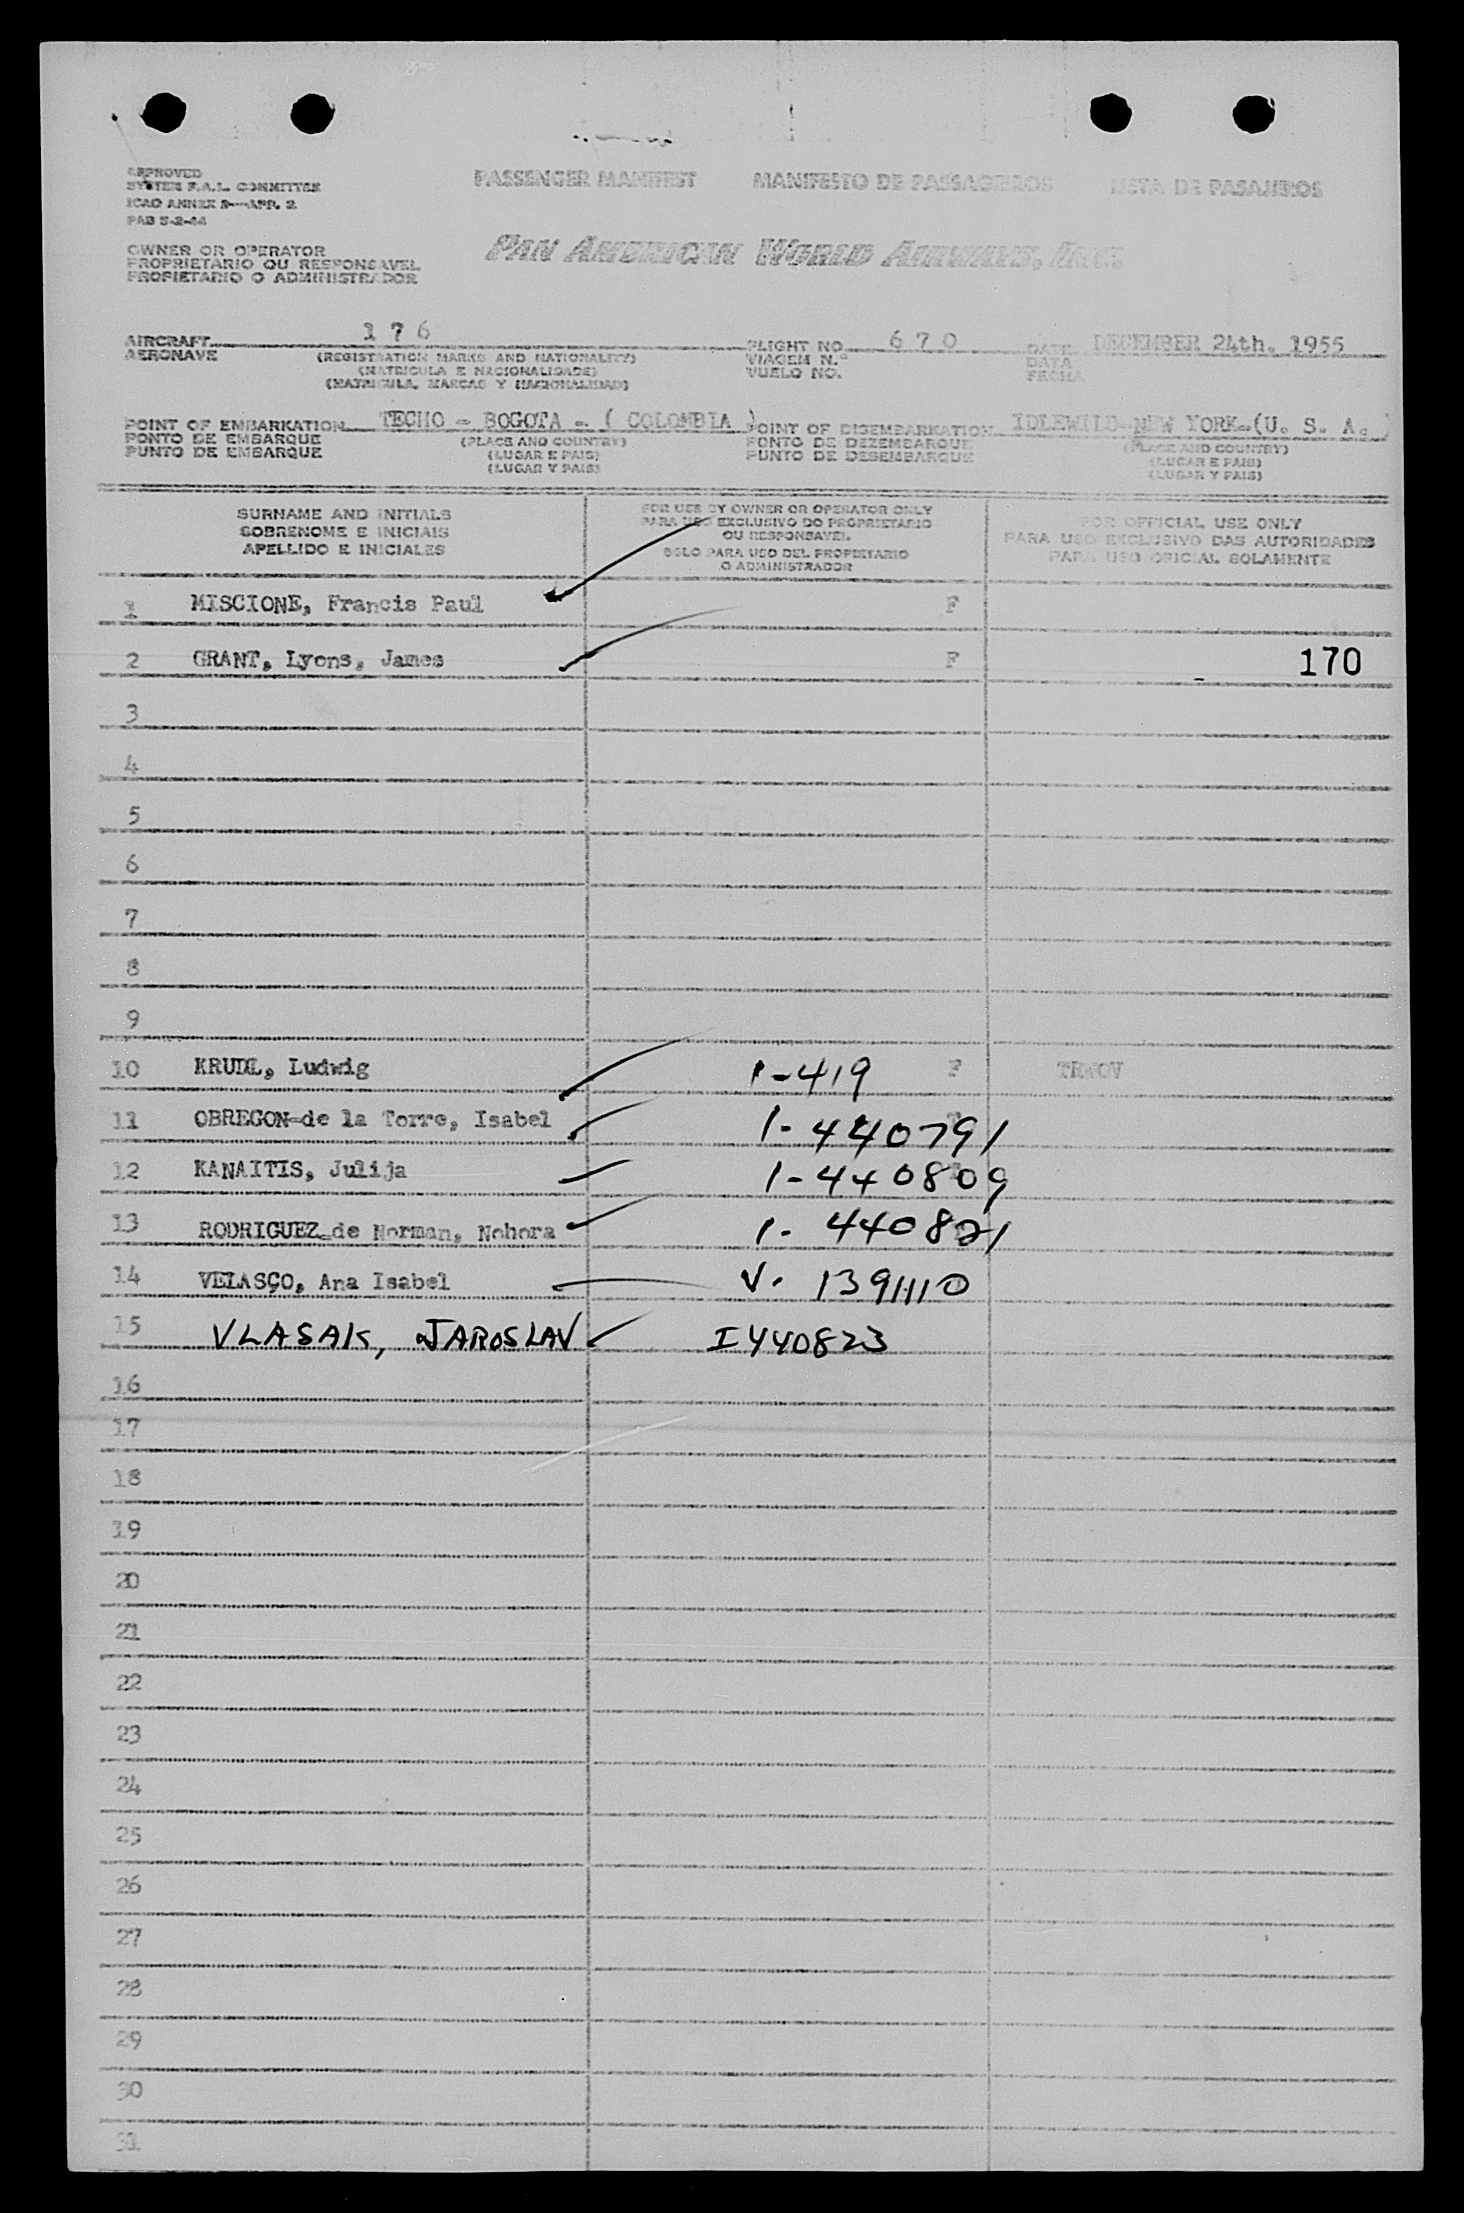 APPROVED
SYSTEM F.A.L. COMMITTEE
ICAO ANNEX 9—APP. 2
PAB S-2-44
PASSENGER MANIFEST MANIFESTO DE PASSAGEIROS LISTA DE PASAJEROS
OWNER OR OPERATOR
PROPRIETARIO OU RESPONSAVEL
PROPIETARIO O ADMINISTRADOR
PAN AMERICAN WORLD AIRWAYS, INC.
AIRCRAFT 176 FLIGHT NO. 670 DATE DECEMBER 24th. 1955
AERONAVE (REGISTRATION MARKS AND NATIONALITY) VIAGEM N.º DATA
(MATRICULA E NACIONALIDADE) VUELO NO. FECHA
(MATRICULA, MARCAS Y NACIONALIDAD)
POINT OF EMBARKATION TECHO - BOGOTA - ( COLOMBIA ) POINT OF DISEMBARKATION IDLEWILD-NEW YORK-(U. S. A. )
PONTO DE EMBARQUE (PLACE AND COUNTRY) PONTO DE DEZEMBARQUE (PLACE AND COUNTRY)
PUNTO DE EMBARQUE (LUGAR E PAIS) PUNTO DE DESEMBARQUE (LUGAR E PAIS)
(LUGAR Y PAIS) (LUGAR Y PAIS)
SURNAME AND INITIALS
SOBRENOME E INICIAIS
APELLIDO E INICIALES
FOR USE BY OWNER OR OPERATOR ONLY
PARA USO EXCLUSIVO DO PROPRIETARIO
OU RESPONSAVEL
SOLO PARA USO DEL PROPIETARIO
O ADMINISTRADOR
FOR OFFICIAL USE ONLY
PARA USO EXCLUSIVO DAS AUTORIDADES
PARA USO OFICIAL SOLAMENTE
1 MISCIONE, Francis Paul F
2 GRANT, Lyons, James F 170
3
4
5
6
7
8
9
10 KRUDL, Ludwig 1-419 F TRWOV
11 OBREGON-de la Torre, Isabel 1-440791
12 KANAITIS, Julija 1-440809
13 RODRIGUEZ-de Norman, Nohora 1-440821
14 VELASCO, Ana Isabel V-1391110
15 VLASAK, JAROSLAV I440823
16
17
18
19
20
21
22
23
24
25
26
27
28
29
30
31